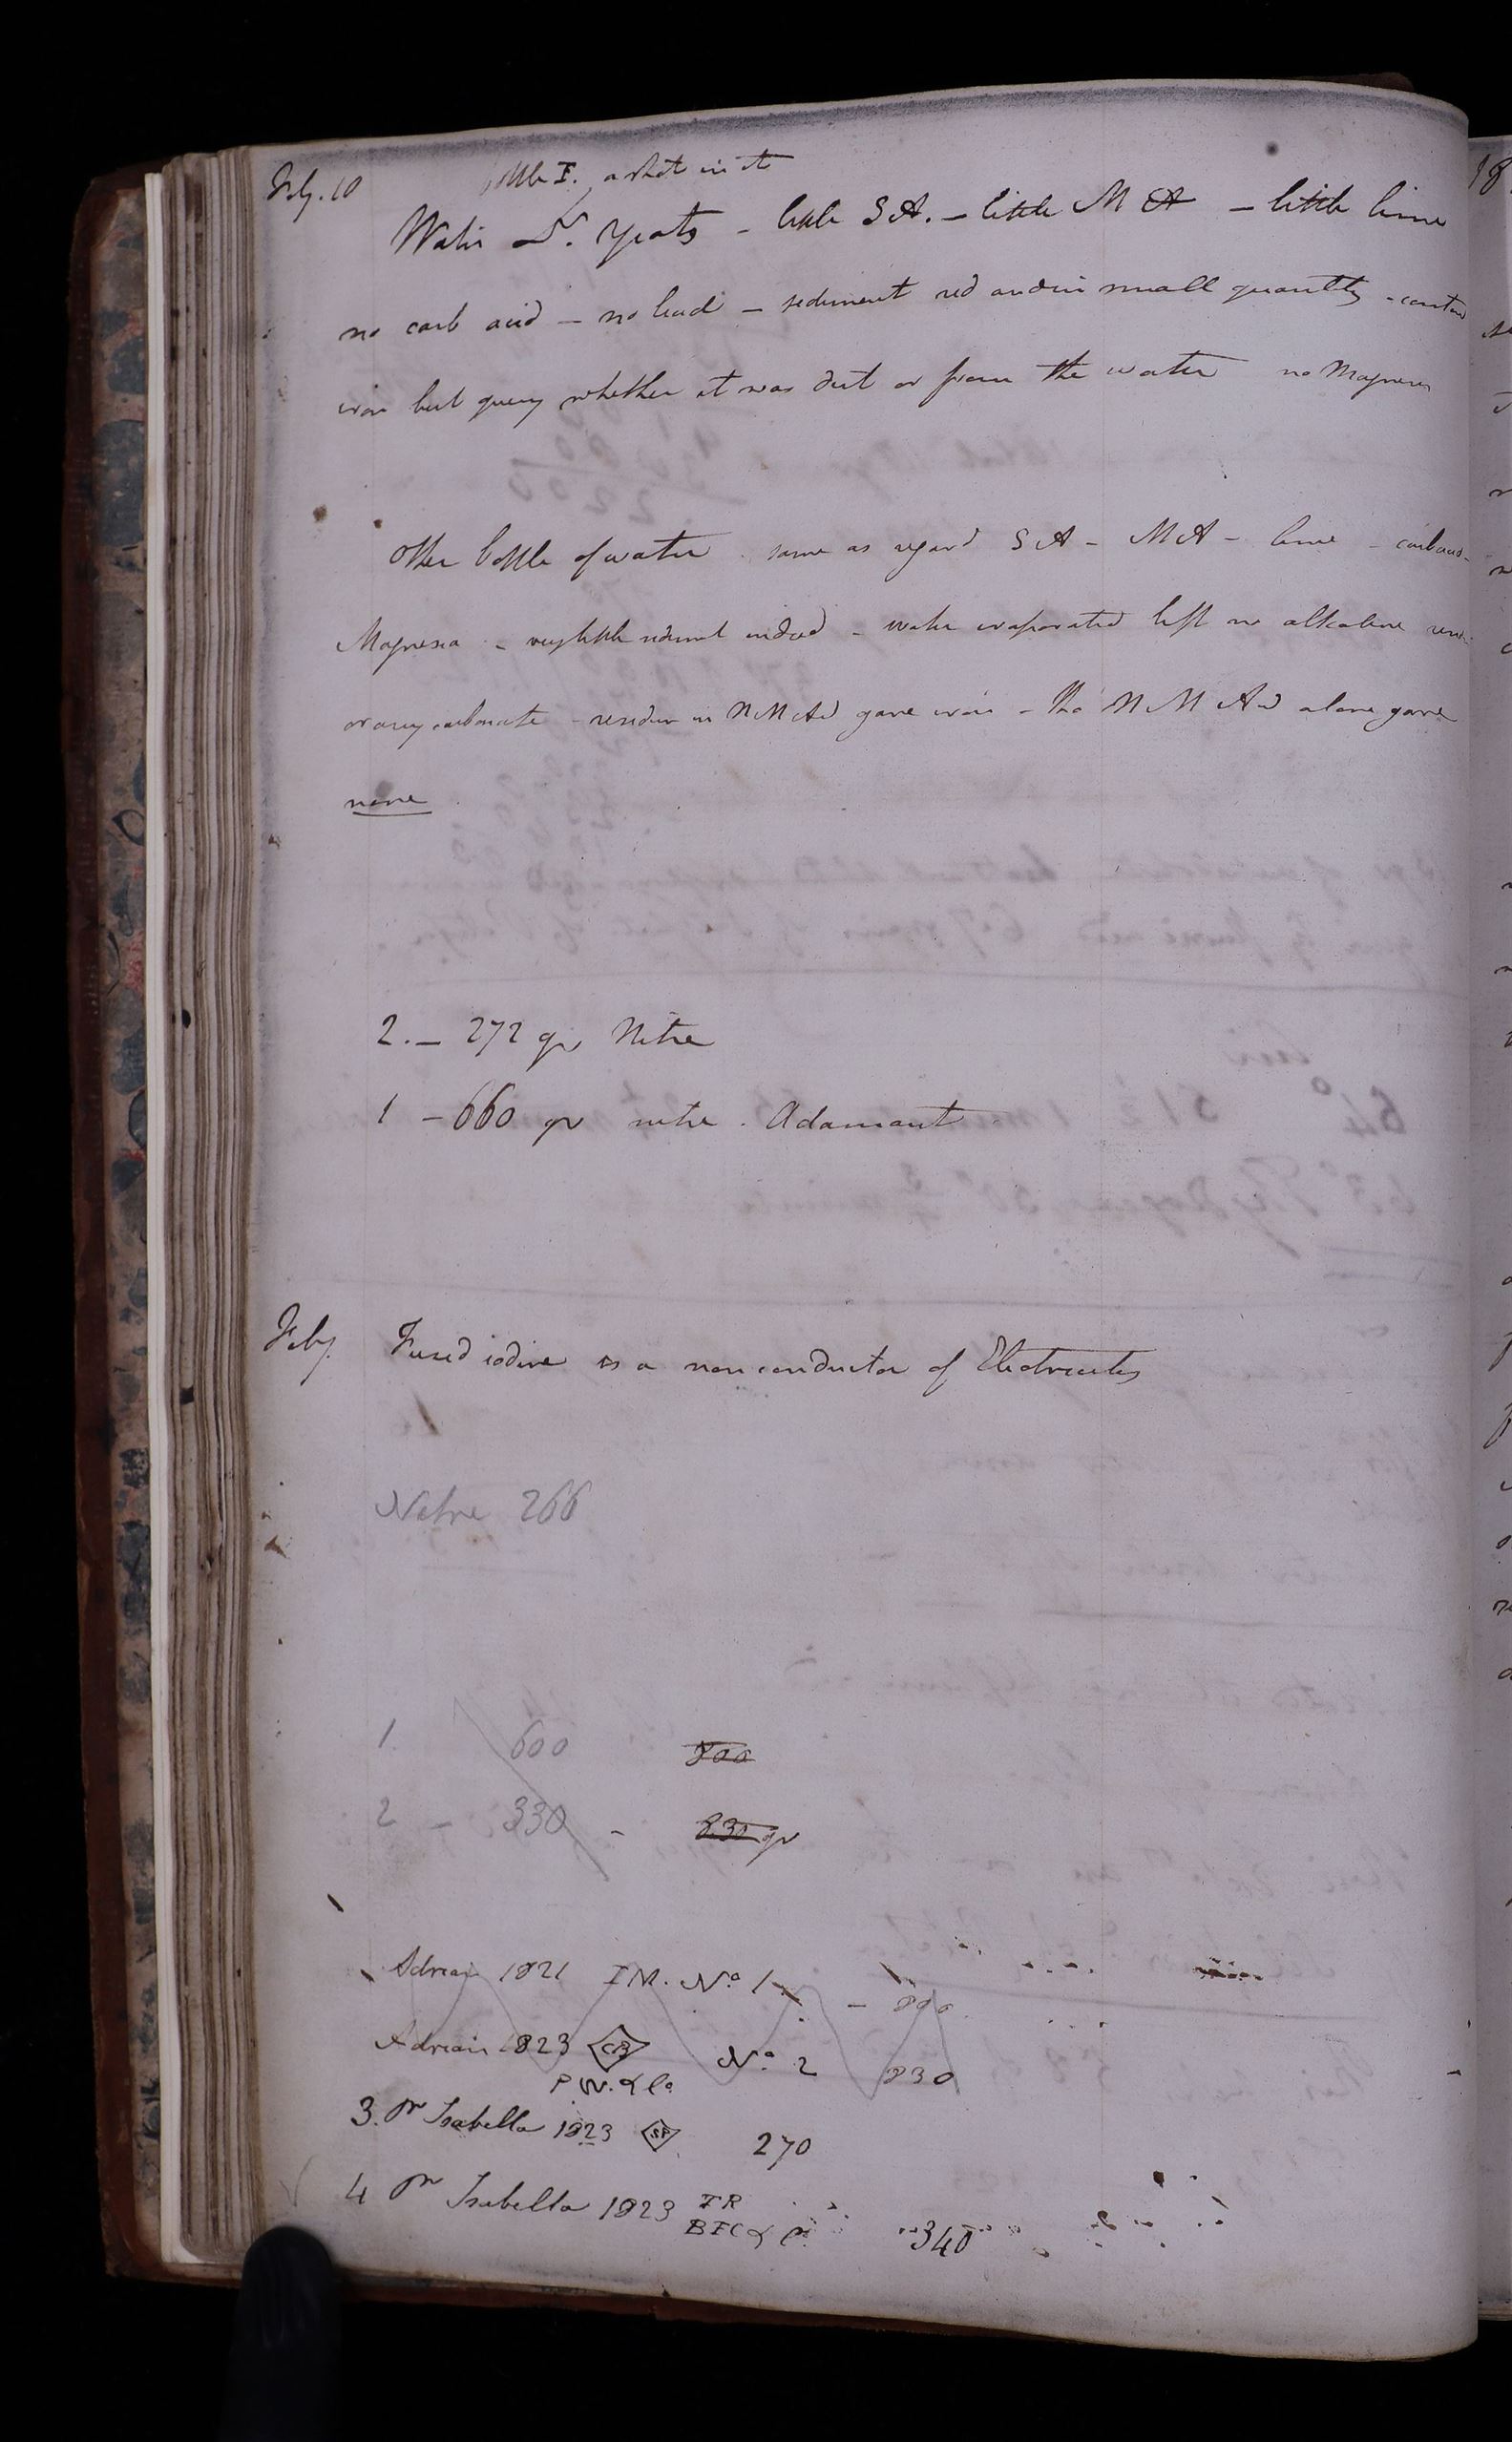 Feby. 10
bottle I. a shot in it
Water Dr. Yeats - little S A. - little M A - little lime
no carb acid - no lead - sediment red and in small quantity - contained
iron but query whether it was dirt or from the water no Magnesia
Other bottle of water same as regard S A - M A - lime - carb acid -
Magnesia - very little sediment indeed - water evaporated left no alkaline
or any carbonate - residue in N M Acid gave iron - the N M Acid alone gave
none
2. - 272 gr Nitre
1 - 660 gr nitre. Adamant
Feby. Fused iodine is a non conductor of Electricity
Nitre 266
1. 600 800
2 - 330 - 830 gr
Adrian 1821 I M. No 1. - 800
Adrian 1823 CB No. 2 830
P W. & Co
3. Pr Isabella 1823 SF 270
4 Pr Isabella 1823 I R
B F C & Co 340